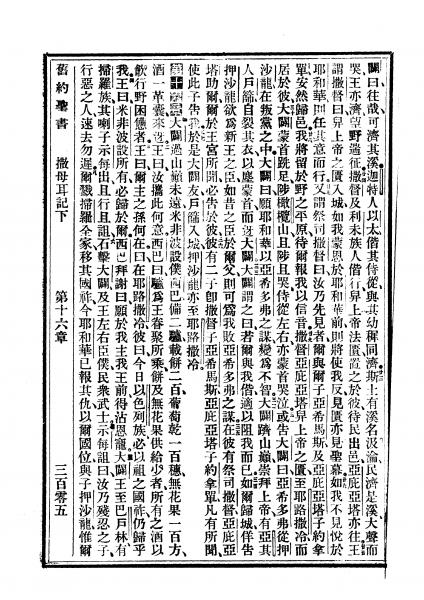 闥曰往哉可濟其溪迦特人以太偕其侍從與其幼穉同濟斯土有溪名汲淪民濟是溪大聲而
哭王亦濟望野遄征撒督及利未族人偕行舁上帝法匱置之於彼待民出邑亞庇亞塔亦往王
謂撒督曰舁上帝之匱入城如我蒙恩於耶和華前則將使我反見匱亦見聖幕如我不見悅於
耶和華則任其意而行又謂祭司撒督曰汝乃先見者爾與爾子亞希馬斯及亞庇亞塔子約拿
單安然歸邑我將留於野之平原待爾報我以信音撒督亞庇亞塔舁上帝匱至耶路撒冷而
居於彼大闢蒙首跣足陟橄欖山且陟且哭侍從左右亦蒙首哭泣或告大闢曰亞希多弗從押
沙龍在叛黨之中大闢曰願耶和華以亞希多弗之謀變爲不智大闢躋山巔崇拜上帝有亞其
人戶篩自裂其衣以塵蒙首而迓大闢大闢謂之曰若爾與我偕適以阻我而已如爾歸城佯告
押沙龍欲爲新王之臣如昔之臣於爾父則可爲我敗亞希多弗之謀在彼有祭司撒督亞庇亞
塔助爾爾於王宮所聞必告於彼彼有二子卽撒督子亞希馬斯亞庇亞塔子約拿單凡有所聞
使此子告我於是大闢友戶篩入城押沙龍亦至耶路撒冷
第十六章大闢過山巔未遠米非波設僕西巴備二驢載餅二百葡萄乾一百穗無花果一百方
酒一革囊來迓王曰汝攜此何意西巴曰驢爲王眷聚所乘餅及無花果供給少者所有之酒以
飲行野困憊者王曰爾主之孫何在曰在耶路撒冷彼曰今日以色列族必以祖之國祚仍歸乎
我王曰米非波設所有必歸於爾西巴拜謝曰願於我主我王前得沾恩寵大闢王至巴戶林有
掃羅族其喇子示每出且行且詛石擊大闢及王左右臣僕民衆武士示每詛曰汝乃殘忍之子
行惡之人速去勿遲爾戮掃羅全家移其國祚今耶和華已報其仇以爾國位與子押沙龍惟爾
舊約聖書 撒母耳記下 第十六章 三百零五